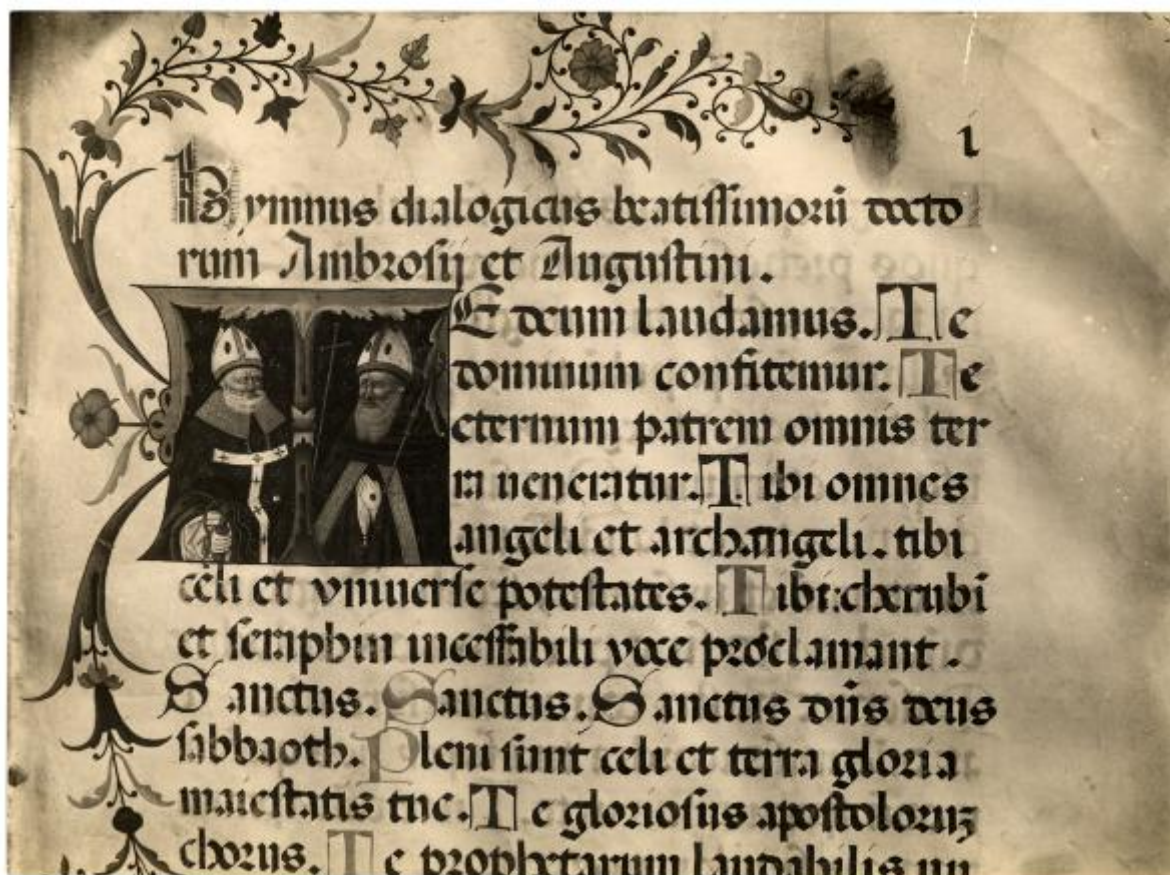 i
Hymnus dialogicus beatissimorũ docto
rum Ambrosij et Augustini.
TE deum laudamus. Te
dominum confitemur. Te
eternum patrem omnis ter
ra ueneratur. Tibi omnes
angeli et archangeli. tibi
celi et vniuerse potestates. Tibi cherubĩ
et seraphin incessabili voce proclamant.
Sanctus. Sanctus. Sanctus dñs deus
sabbaoth. Pleni sunt celi et terra gloria
maiestatis tue. Te gloriosus apostoloruꝫ
chorus. Te prophetarum laudabilis nu